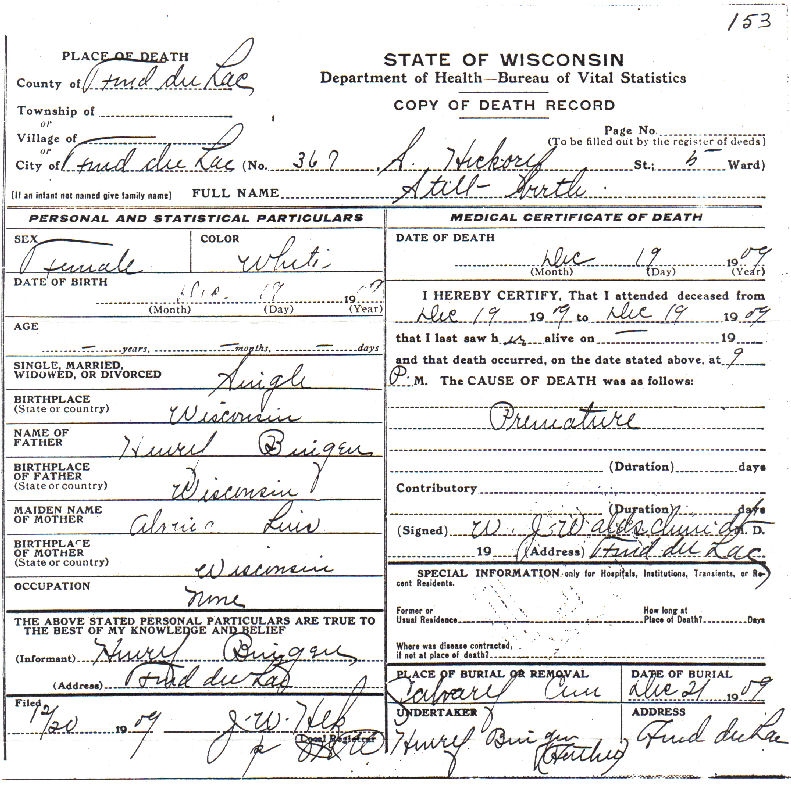 153
PLACE OF DEATH
County of Fond du Lac
STATE OF WISCONSIN
Department of Health—Bureau of Vital Statistics
COPY OF DEATH RECORD
Township of
or
Village of
or
Page No.
(To be filled out by the register of deeds)
City of Fond du Lac (No. 367 S. Hickory St.; 5 Ward)
(If an infant not named give family name) FULL NAME Still-Birth
PERSONAL AND STATISTICAL PARTICULARS
SEX Female
COLOR White
DATE OF BIRTH
Dec. 19 190
(Month) (Day) (Year)
AGE
— years, — months, — days
SINGLE, MARRIED,
WIDOWED, OR DIVORCED Single
BIRTHPLACE
(State or country) Wisconsin
NAME OF
FATHER Henry
BIRTHPLACE
OF FATHER
(State or country) Wisconsin
MAIDEN NAME
OF MOTHER
BIRTHPLACE
OF MOTHER
(State or country) Wisconsin
OCCUPATION
None
THE ABOVE STATED PERSONAL PARTICULARS ARE TRUE TO
THE BEST OF MY KNOWLEDGE AND BELIEF
(Informant) Henry
(Address) Fond du Lac
Filed
12/20 1909 J. W.
Local Registrar
MEDICAL CERTIFICATE OF DEATH
DATE OF DEATH
Dec 19 1909
(Month) (Day) (Year)
I HEREBY CERTIFY, That I attended deceased from
Dec 19 1909 to Dec 19 1909
that I last saw her alive on — 19
and that death occurred, on the date stated above, at 9
P. M. The CAUSE OF DEATH was as follows:
Premature
(Duration) days
Contributory
(Duration) days
(Signed) W. J. Waldschmidt M. D.
19 (Address) Fond du Lac
SPECIAL INFORMATION only for Hospitals, Institutions, Transients, or Re-
cent Residents.
Former or
Usual Residence
How long at
Place of Death? Days
Where was disease contracted,
if not at place of death?
PLACE OF BURIAL OR REMOVAL
Calvary Cem
DATE OF BURIAL
Dec 21 1909
UNDERTAKER
Henry
(Father)
ADDRESS
Fond du Lac